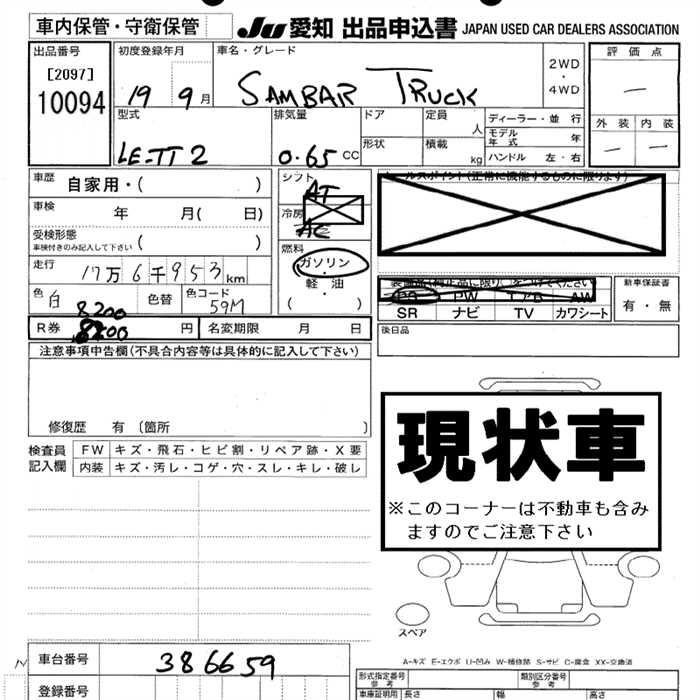 車内保管・守衛保管
JU 愛知 出品申込書 JAPAN USED CAR DEALERS ASSOCIATION
出品番号
[2097]
10094
初度登録年月
19 9月
車名・グレード
SAMBAR TRUCK
2WD
・
4WD
評価点
—
外装 内装
— —
型式
LE-TT2
排気量
0.65 CC
ドア
定員
人
形状
積載
kg
ディーラー・並行
モデル年式 年
ハンドル 左・右
車歴 自家用・( )
シフト
AT
車検 年 月( 日)
冷房
AC
受検形態
車検付きのみ記入して下さい ( )
燃料
ガソリン
軽油
( )
走行 17万6千953km
色 白
色替
色コード
59M
8200
R券 8200 円
名変期限 月 日
セールスポイント(正常に機能するものに限ります)
PS PW エアB AW
SR ナビ TV カワシート
新車保証書
有・無
後日品
注意事項申告欄(不具合内容等は具体的に記入して下さい)
修復歴 有 (箇所 )
検査員記入欄
FW キズ・飛石・ヒビ割・リペア跡・X要
内装 キズ・汚レ・コゲ・穴・スレ・キレ・破レ
現状車
※このコーナーは不動車も含み
ますのでご注意下さい
スペア
A-キズ E-エクボ U-凹み W-補修跡 S-サビ C-腐食 XX-交換済
車台番号 386659
登録番号
形式指定番号
参考
類別区分番号
参考
車庫証明用
参考
長さ
幅
高さ